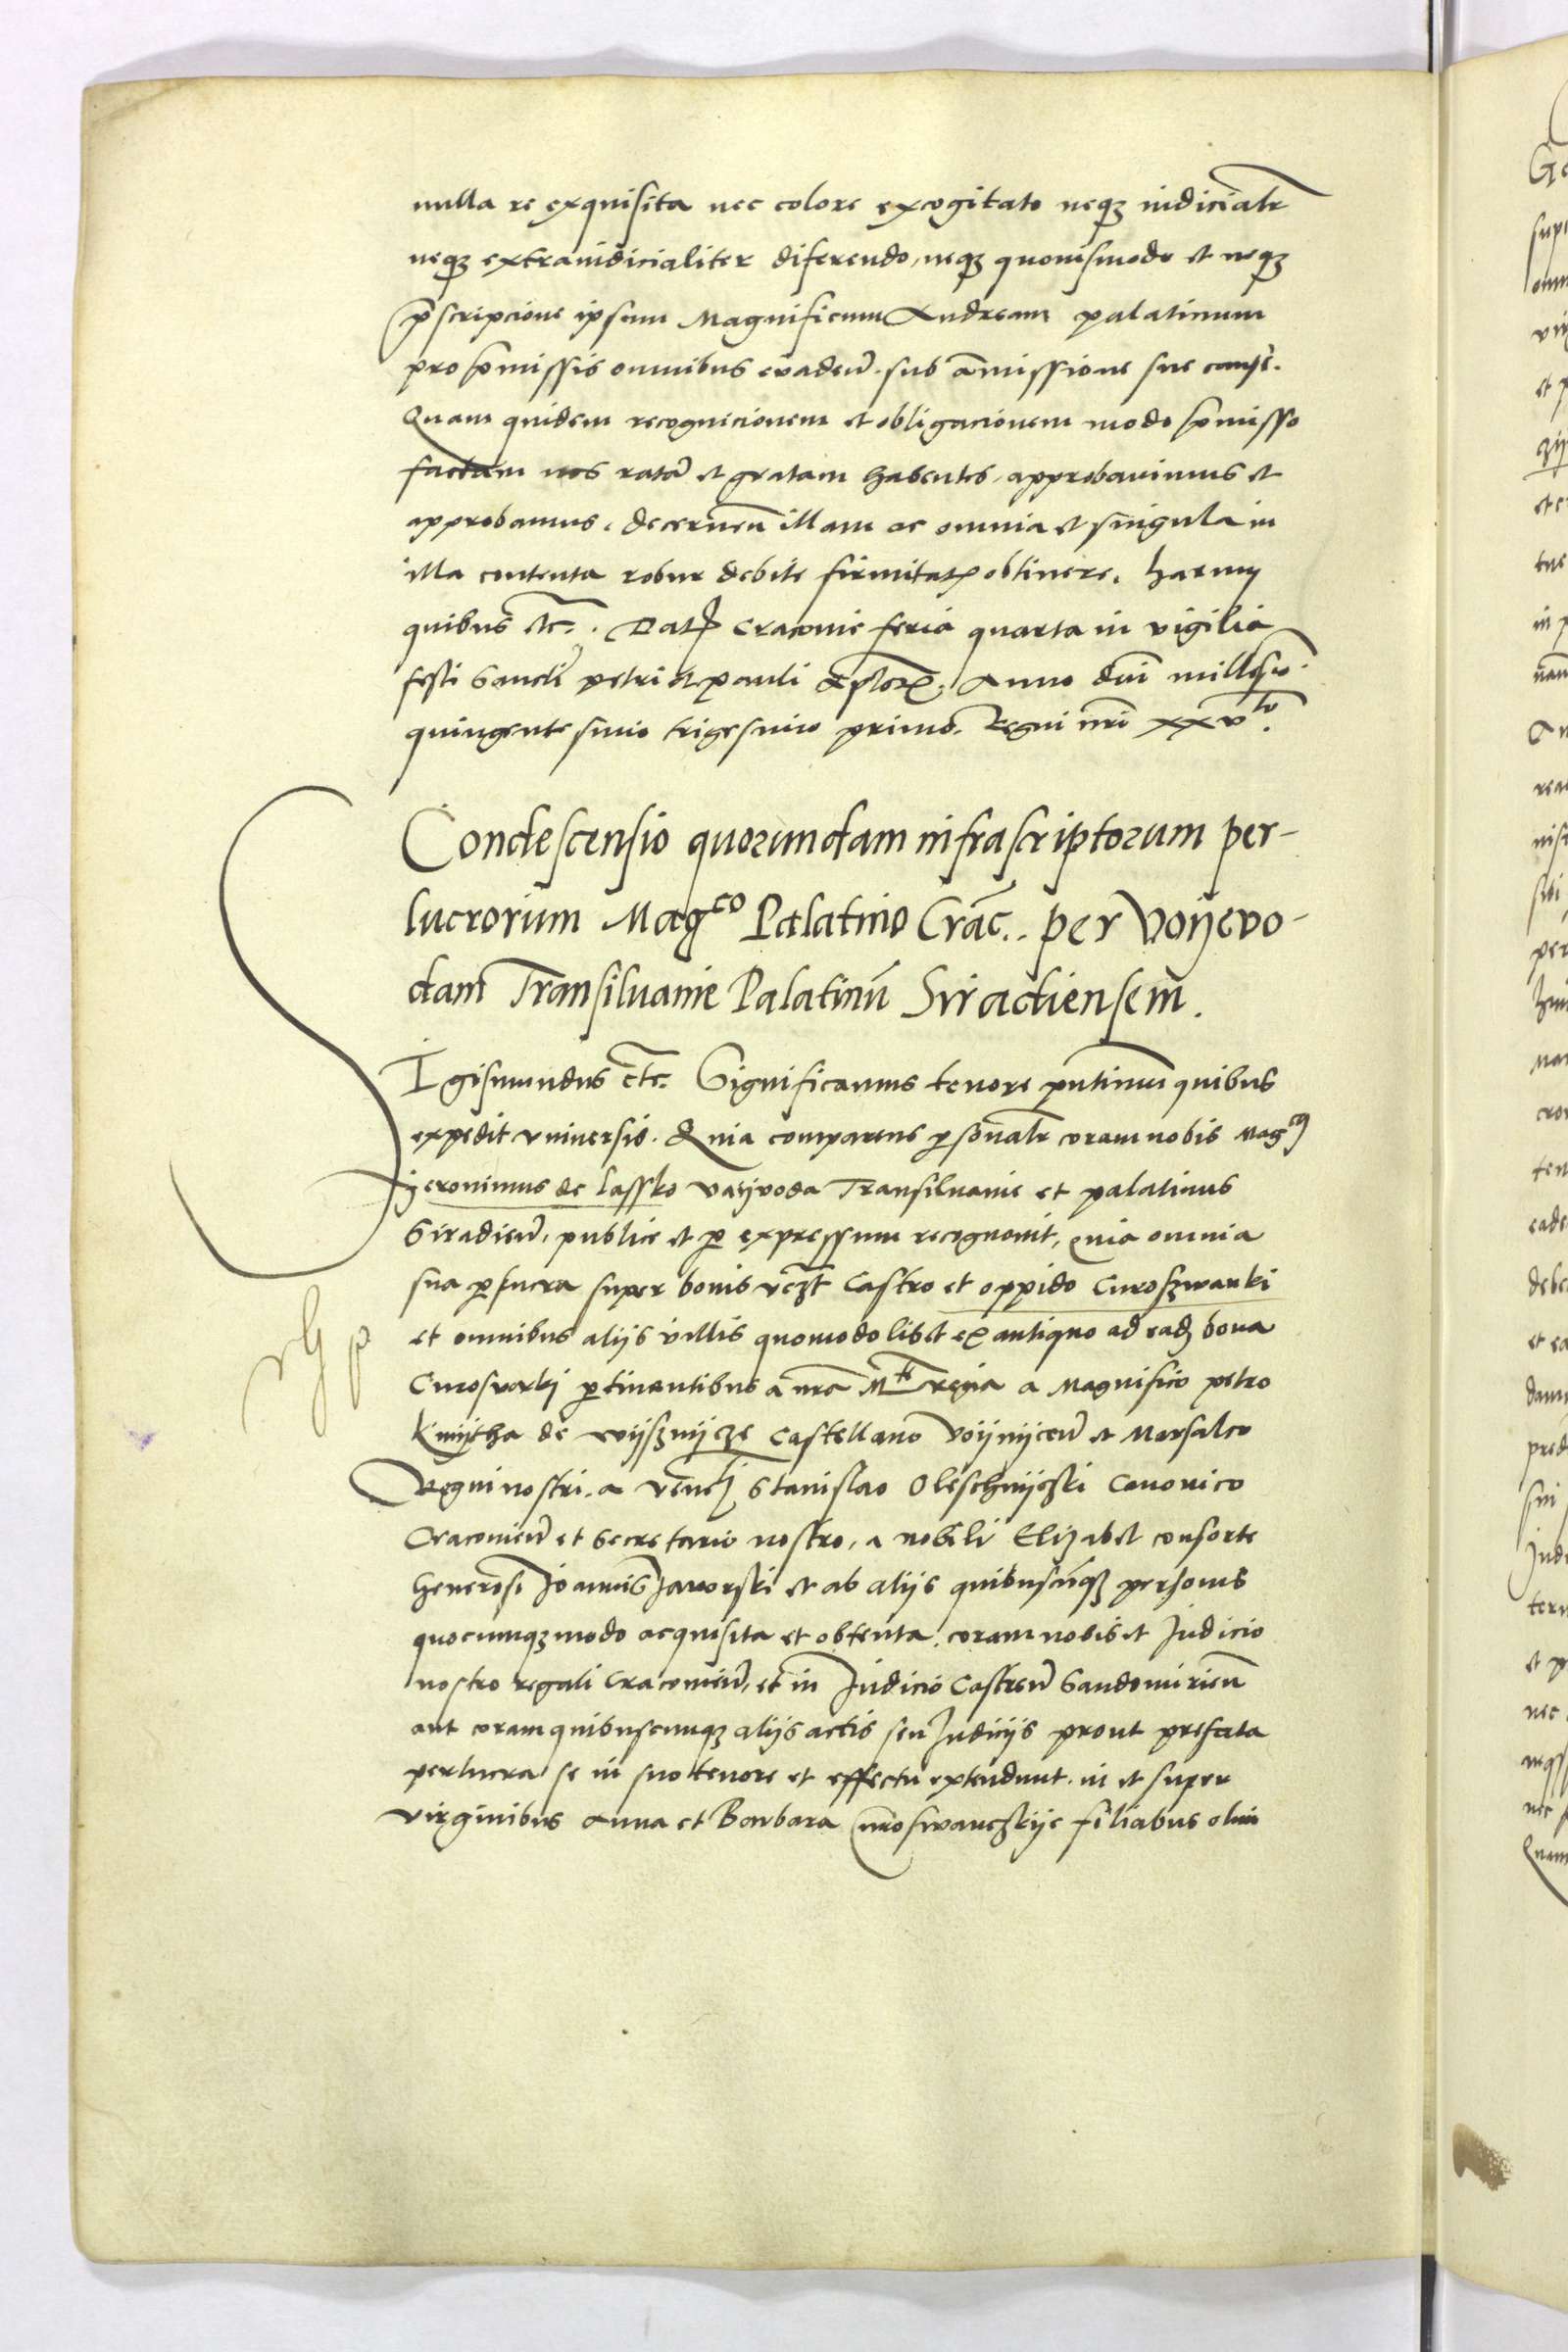 nulla re exquisita nec colore excogitato neqȝ iudicialr̃
neqȝ extraiudicialiter diferendo, neqȝ quouismodo et neqȝ
p̃scripcione ipsum Magnificum Andream palatinum
pro p̃missis omnibus euadeñ. sub amissione sue cause.
Quam quidem recognicionem et obligacionem modo p̃misso
factam nos ratā et gratam habentes, approbauimus et
approbamus. deceruen̄ illam ac omnia et singula in
illa contenta robur debite firmitatꝭ obtinere. harum
quibus etc̃. Datꝭ Cracouie feria quarta in vigilia
festi Sancti petri et pauli Apl̃orꝝ. Anno dñi millesīo
quingentesimo trigesimo primo. Regni nr̃i xxvto.
Condescensio quorumdam infrascriptorum per-
lucrorum Magco Palatino Crac̃.. per Voijevo-
dam Transiluanie Palatinū Siradiensem̄.
SIgismundus etc̃. Significamus tenore pñtium quibus
expedit vniuersis. Quia comparens personalr̃ coram nobis Magcꝰ
Jeronimus de lassko vaijvoda Transiluanie et palatinus
Siradieñ, publice et per expressum recognouit, quia omnia
sua perlucra super bonis vcȝt Castro et oppido Curoszwanki
et omnibus aliis villis quomodolibet ex antiquo ad eadȝ bona
Curosvanki pertinentibus a nr̃a Mte regia a Magnifico petro
Kmijtha de wijsznijcze Castellano Voijnijceñ et Marsalco
Regni nostri. a veneꝭ Stanislao Oleschnijczki Canonico
Cracouieñ et Secretario nostro, a nobili Elizabet consorte
Generosi Joannis Jaworski et ab aliis quibuscūqȝ personis
quocumqȝ modo acquisita et obtenta. coram nobis et Judicio
nostro regali Cracouieñ, et in Judicio Castreñ Sandomirieñ
aut coram quibuscumqȝ aliis actis seu Judiciis prout prefata
perlucra se in suo tenore et effectu extendunt. in et super
virginibus Anna et Barbara Curoswanczkije filiabus olim